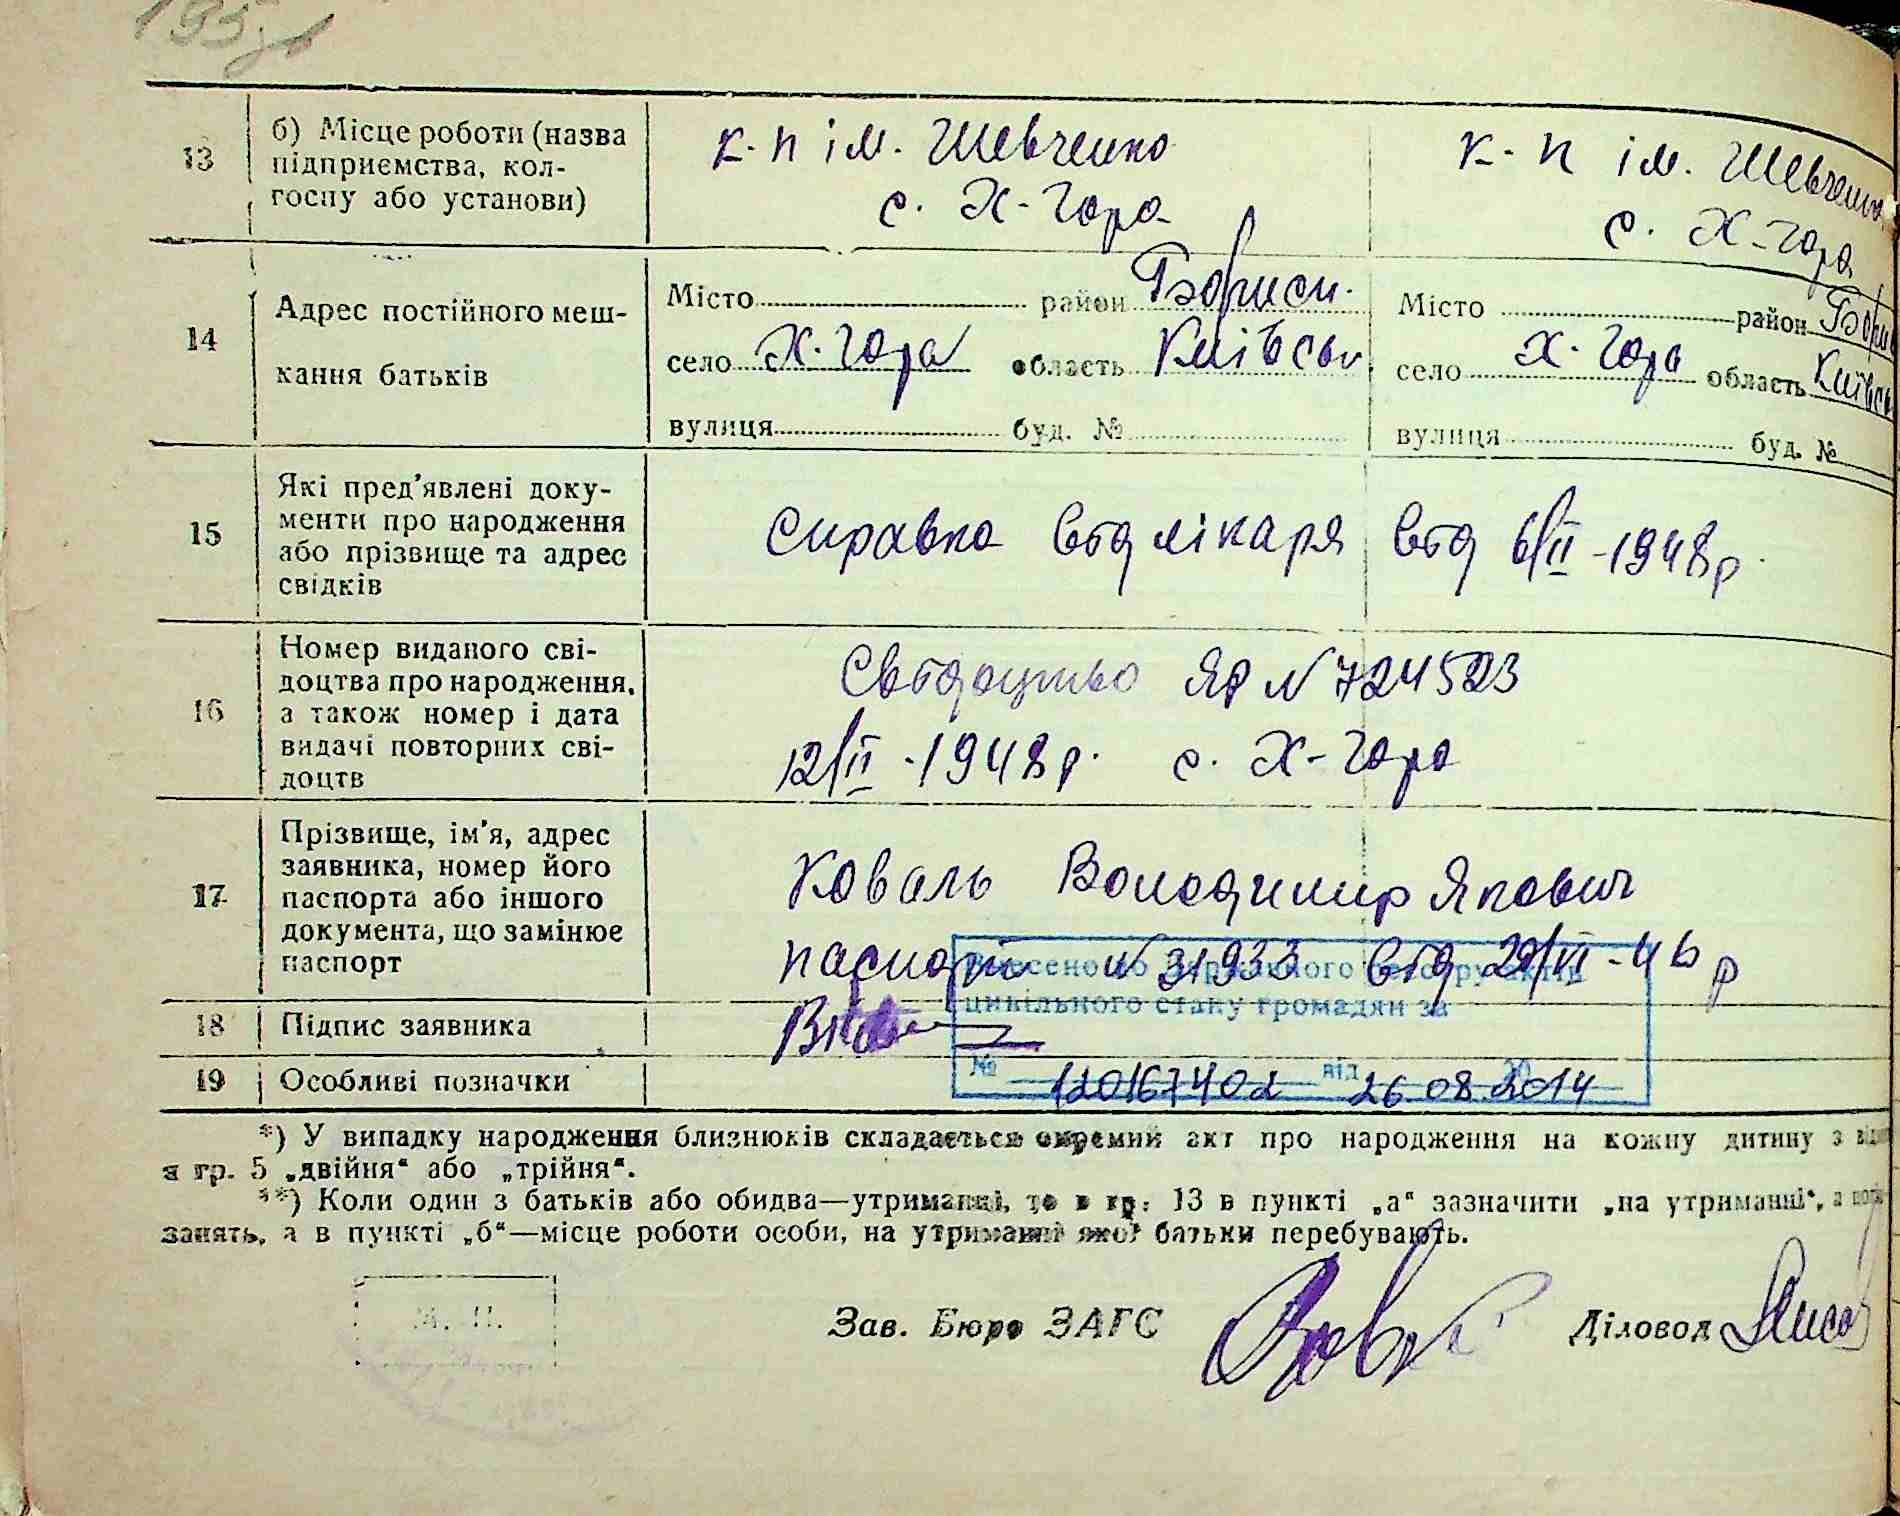 195
13
б) Місце роботи (назва
підприємства, кол-
госпу або установи)
к-п ім. Шевченко
с. Х-Гора
к-п ім. Шевченко
с. Х-Гора
14
Адрес постійного меш-
кання батьків
Місто район Бориси.
село Х. Гора область Київськ
вулиця буд. №
Місто район
село Х. Гора область Київсь
вулиця буд. №
15
Які пред'явлені доку-
менти про народження
або прізвище та адрес
свідків
Справка від лікаря від 6/II-1948р.
16
Номер виданого сві-
доцтва про народження,
а також номер і дата
видачі повторних сві-
доцтв
Свідоцтво ЯР N 724523
12/II-1948р. с. Х-Гора
17
Прізвище, ім'я, адрес
заявника, номер його
паспорта або іншого
документа, що замінює
паспорт
Коваль Володимир Якович
паспорт N 31933 від 29/VI-46р
Внесено до Державного реєстру актів
цивільного стану громадян за
18
Підпис заявника
19
Особливі позначки
№ 120167402 від 26.08.2014
*) У випадку народження близнюків складається окремий акт про народження на кожну дитину з
в гр. 5 „двійня“ або „трійня“.
**) Коли один з батьків або обидва—утриманці, то в гр. 13 в пункті „а“ зазначити „на утриманні“, а
занять, а в пункті „б“—місце роботи особи, на утриманні якої батьки перебувають.
М. П.
Зав. Бюро ЗАГС
Діловод